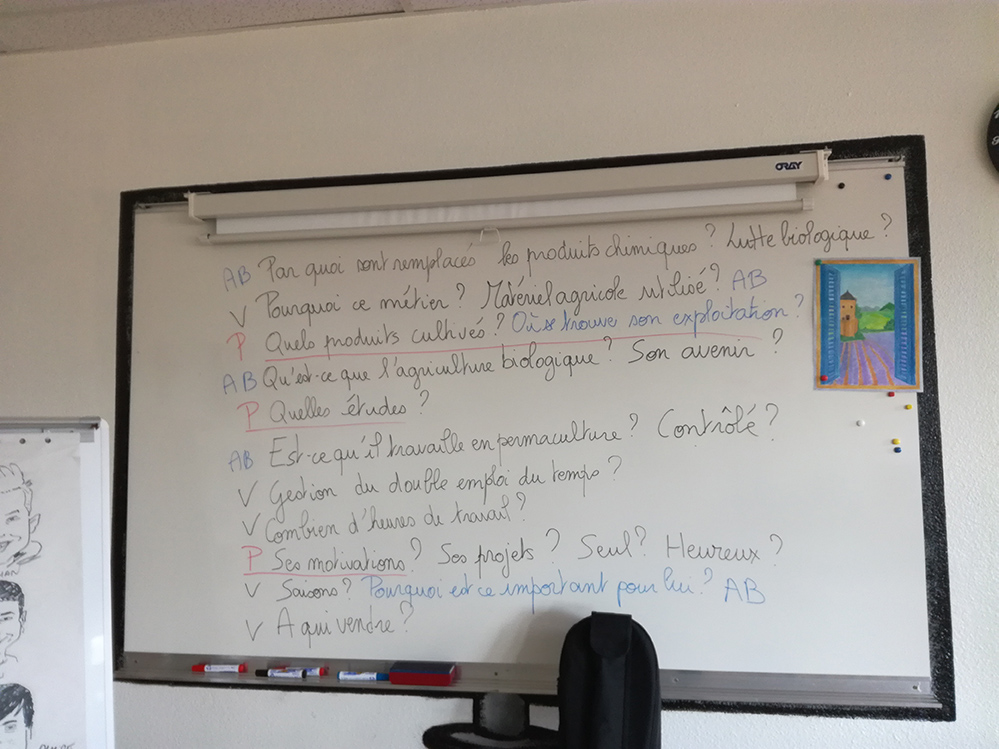 ORAY
AB Par quoi sont remplacés les produits chimiques ? Lutte biologique ?
V Pourquoi ce métier ? Matériel agricole utilisé ? AB
P Quels produits cultivés ? Où se trouve son exploitation ?
AB Qu'est-ce que l'agriculture biologique ? Son avenir ?
P Quelles études ?
AB Est-ce qu'il travaille en permaculture ? Contrôlé ?
V Gestion du double emploi du temps ?
V Combien d'heures de travail ?
P Ses motivations ? Ses projets ? Seul ? Heureux ?
V Saisons ? Pourquoi est ce important pour lui ? AB
V A qui vendre ?